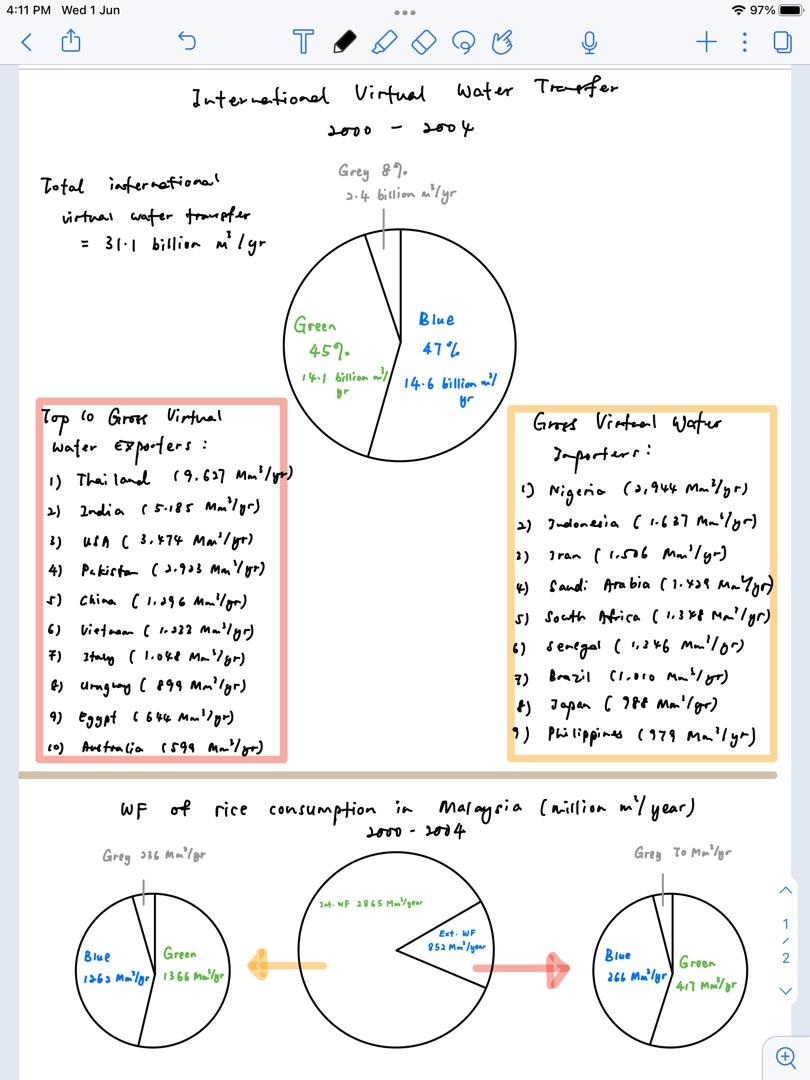 4:11 PM Wed 1 Jun
97%
International Virtual Water Transfer
2000 - 2004
Total international
virtual water transfer
= 31.1 billion m³/yr
Grey 8%
2.4 billion m³/yr
Green
45%
14.1 billion m³/
yr
Blue
47%
14.6 billion m³/
yr
Top 10 Gross Virtual
Water Exporters :
1) Thailand (9.627 Mm³/yr)
2) India (5.185 Mm³/yr)
3) USA ( 3.474 Mm³/yr)
4) Pakistan ( 2.923 Mm³/yr)
5) China ( 1.296 Mm³/yr)
6) Vietnam ( 1.233 Mm³/yr)
7) Italy ( 1.048 Mm³/yr)
8) Uruguay ( 899 Mm³/yr)
9) Egypt ( 644 Mm³/yr)
10) Australia (599 Mm³/yr)
Gross Virtual Water
Importers :
1) Nigeria (2,944 Mm³/yr)
2) Indonesia ( 1.637 Mm³/yr)
3) Iran ( 1.506 Mm³/yr)
4) Saudi Arabia ( 1.429 Mm³/yr)
5) South Africa ( 1.348 Mm³/yr)
6) Senegal ( 1.346 Mm³/yr)
7) Brazil (1.010 Mm³/yr)
8) Japan ( 988 Mm³/yr)
9) Philippines (979 Mm³/yr)
WF of rice consumption in Malaysia (million m³/year)
2000 - 2004
Grey 236 Mm³/yr
Blue
1262 Mm³/yr
Green
1366 Mm³/yr
Int. WF 2865 Mm³/year
Ext. WF
852 Mm³/year
Grey 70 Mm³/yr
Blue
366 Mm³/yr
Green
417 Mm³/yr
1
/
2